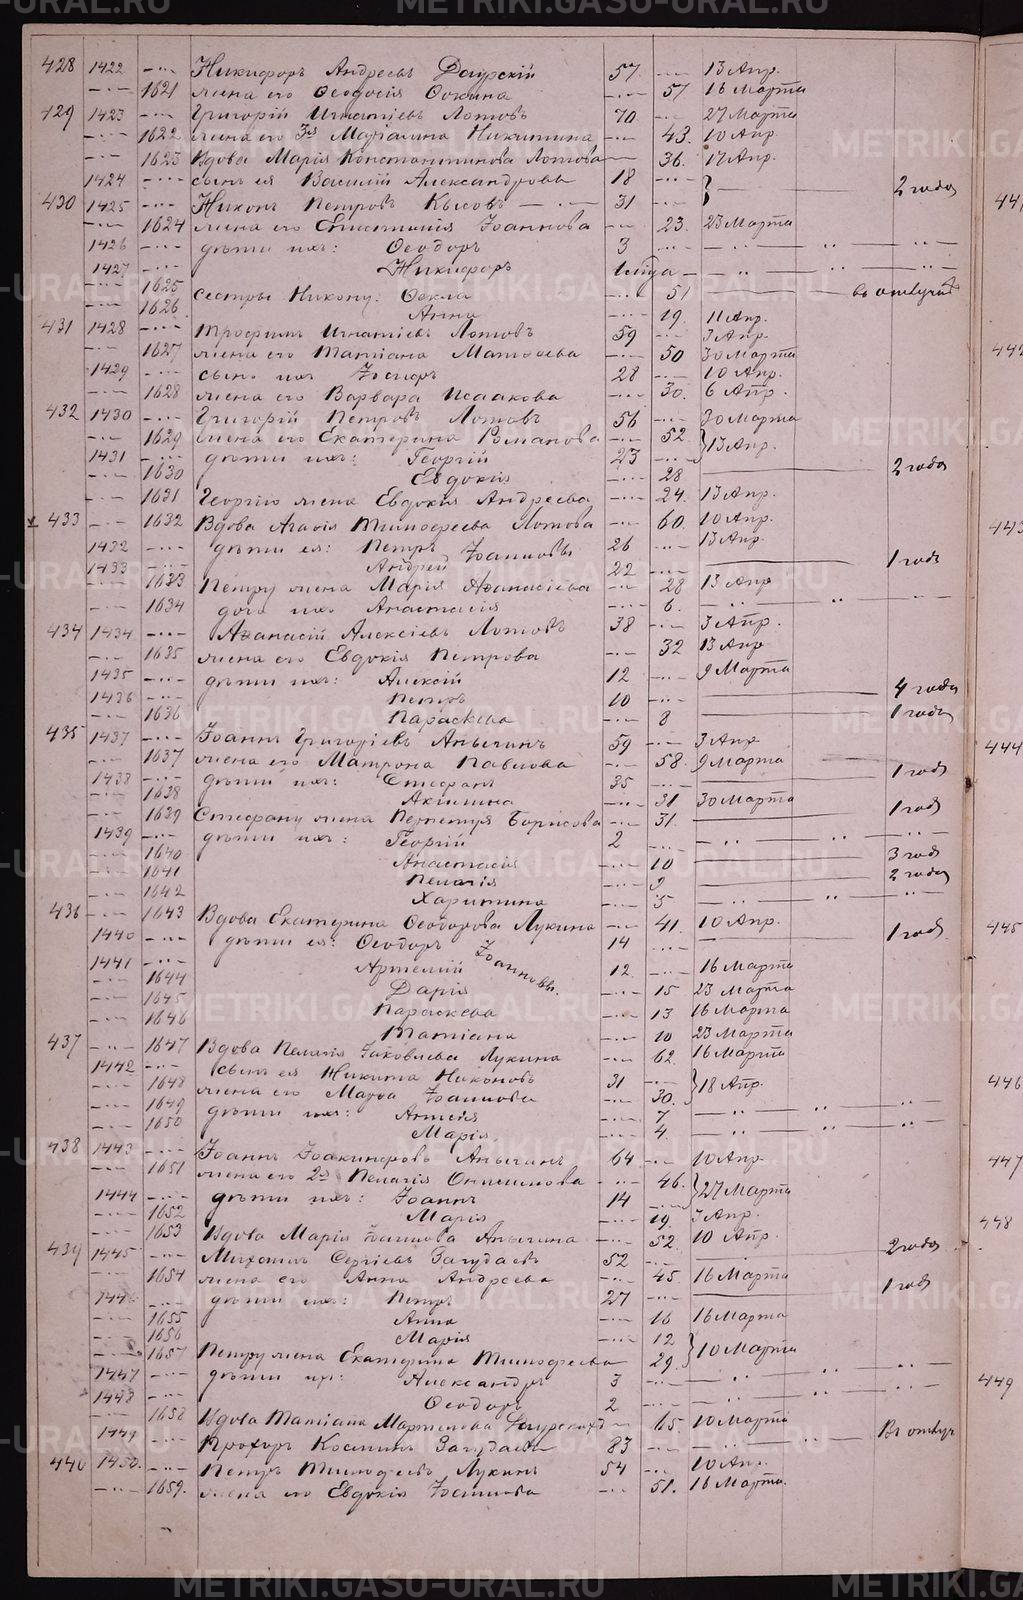 428 1422 —··— Никифоръ Андреевъ Даурскій 57 —··— 13 Апр.
—··— 1621 жена его Ѳеодосія Фокина —··— 57 16 Марта
429 1423 —··— Григорій Игнатіевъ Лотовъ 70 —··— 27 Марта
—··— 1622 жена его 3я Маріамина Никитина —··— 43. 10 Апр.
—··— 1623 Вдова Марія Константинова Лотова —··— 36. 17 Апр.
1424 —··— сынъ ея Василій Александровъ 18 —··— 2 года
430 1425 —··— Никонъ Петровъ 31 —··—
—··— 1624 жена его Епистимія Іоаннова —··— 23. 23 Марта
1426 —··— дѣти ихъ: Ѳеодоръ 3 —··—
1427 —··— Никифоръ 1 года
—··— 1625 сестры Никону: Ѳекла —··— 51 въ отлучкѣ
—··— 1626 Анна —··— 19. 11 Апр.
431 1428 —··— Трофимъ Игнатіевъ Лотовъ 59 —··— 3 Апр.
—··— 1627 жена его Татіана Матѳеева —··— 50 30 Марта
1429 —··— сынъ ихъ 28 —··— 10 Апр.
—··— 1628 жена его Варвара Исаакова —··— 30. 6 Апр.
432 1430 —··— Григорій Петровъ Лотовъ 56 —··— 30 Марта
—··— 1629 жена его Екатерина Романова —··— 52. 13 Апр.
1431 —··— дѣти ихъ: Георгій 23 —··—
—··— 1630 Евдокія —··— 28 2 года
—··— 1631 Георгію жена Евдокія Андреева —··— 24. 13 Апр.
433 —··— 1632 Вдова Агаѳія Тимоѳеева Лотова —··— 60. 10 Апр.
1432 —··— дѣти ея: Петръ Іоанновы 26 —··— 13 Апр.
1433 —··— Андрей 22 —··— 1 годъ
—··— 1633 Петру жена Марія Аѳанасіева —··— 28 13 Апр
—··— 1634 дочь ихъ Анастасія —··— 6.
434 1434 —··— Аѳанасій Алексіевъ Лотовъ 38 —··— 3 Апр.
—··— 1635 жена его Евдокія Петрова —··— 32 13 Апр
1435 —··— дѣти ихъ: Алексій 12 —··— 9 Марта
1436 —··— Петръ 10 —··— 4 года
—··— 1636 Параскева —··— 8 1 годъ
435 1437 —··— Іоаннъ Григоріевъ Аничинъ 59 —··— 3 Апр
—··— 1637 жена его Матрона Павлова —··— 58. 9 Марта
1438 —··— дѣти ихъ: Стефанъ 35 —··— 1 годъ
—··— 1638 Акилина —··— 31 30 Марта
—··— 1639 Стефану жена Перпетуя Борисова —··— 31 1 годъ
1439 —··— дѣти ихъ: Георгій 2 —··—
—··— 1640 Анастасія —··— 10 3 года
—··— 1641 Пелагія —··— 9 2 года
—··— 1642 Харитина —··— 5
436 —··— 1643 Вдова Екатерина Ѳеодорова Лукина —··— 41. 10 Апр.
1440 —··— дѣти ея: Ѳеодоръ Іоанновы. 14 —··— 1 годъ
1441 —··— Артемій 12. —··— 16 Марта
—··— 1644 Дарія —··— 15 23 Марта
—··— 1645 Параскева —··— 13 16 Марта
—··— 1646 Татіана —··— 10 23 Марта
437 —··— 1647 Вдова Пелагія Іаковлева Лукина —··— 62. 16 Марта
1442 —··— сынъ ея Никита Никоновъ 31 —··— 18 Апр.
—··— 1648 жена его Марѳа Іоаннова —··— 30.
—··— 1649 дѣти ихъ: —··— 7
—··— 1650 Марія —··— 4.
438 1443 —··— Іоаннъ Іоакимовъ Аничинъ 64 —··— 10 Апр.
—··— 1651 жена его 2я Пелагія Онисимова —··— 46. 27 Марта
1444 —··— дѣти ихъ: Іоаннъ 14 —··—
—··— 1652 Марія —··— 19. 3 Апр.
—··— 1653 Вдова Марія Іоаннова Аничина —··— 52. 10 Апр.
439 1445 —··— Михаилъ Сергіевъ Загудаевъ 52 —··— 2 года
—··— 1654 жена его Анна Андреева —··— 45. 16 Марта
1446 —··— дѣти ихъ: Петръ 27 —··— 1 годъ
—··— 1655 Анна —··— 16 16 Марта
—··— 1656 Марія —··— 12
—··— 1657 Петру жена Екатерина Тимоѳеева —··— 29. 10 Марта
1447 —··— дѣти ихъ: Александръ 3 —··—
1448 —··— Ѳеодоръ 2 —··—
—··— 1658 Вдова Татіана Мартинова Даурскихъ —··— 65. 10 Марта
1449 —··— Прохоръ Косминъ Загудаевъ 83 —··— Въ отлуч
440 1450. —··— Петръ Тимоѳеевъ Лукинъ 54 —··— 10 Апр.
—··— 1659. жена его Евдокія Іоаннова —··— 51. 16 Марта.
444
445
446
447
448
449
METRIKI.GASO-URAL.RU